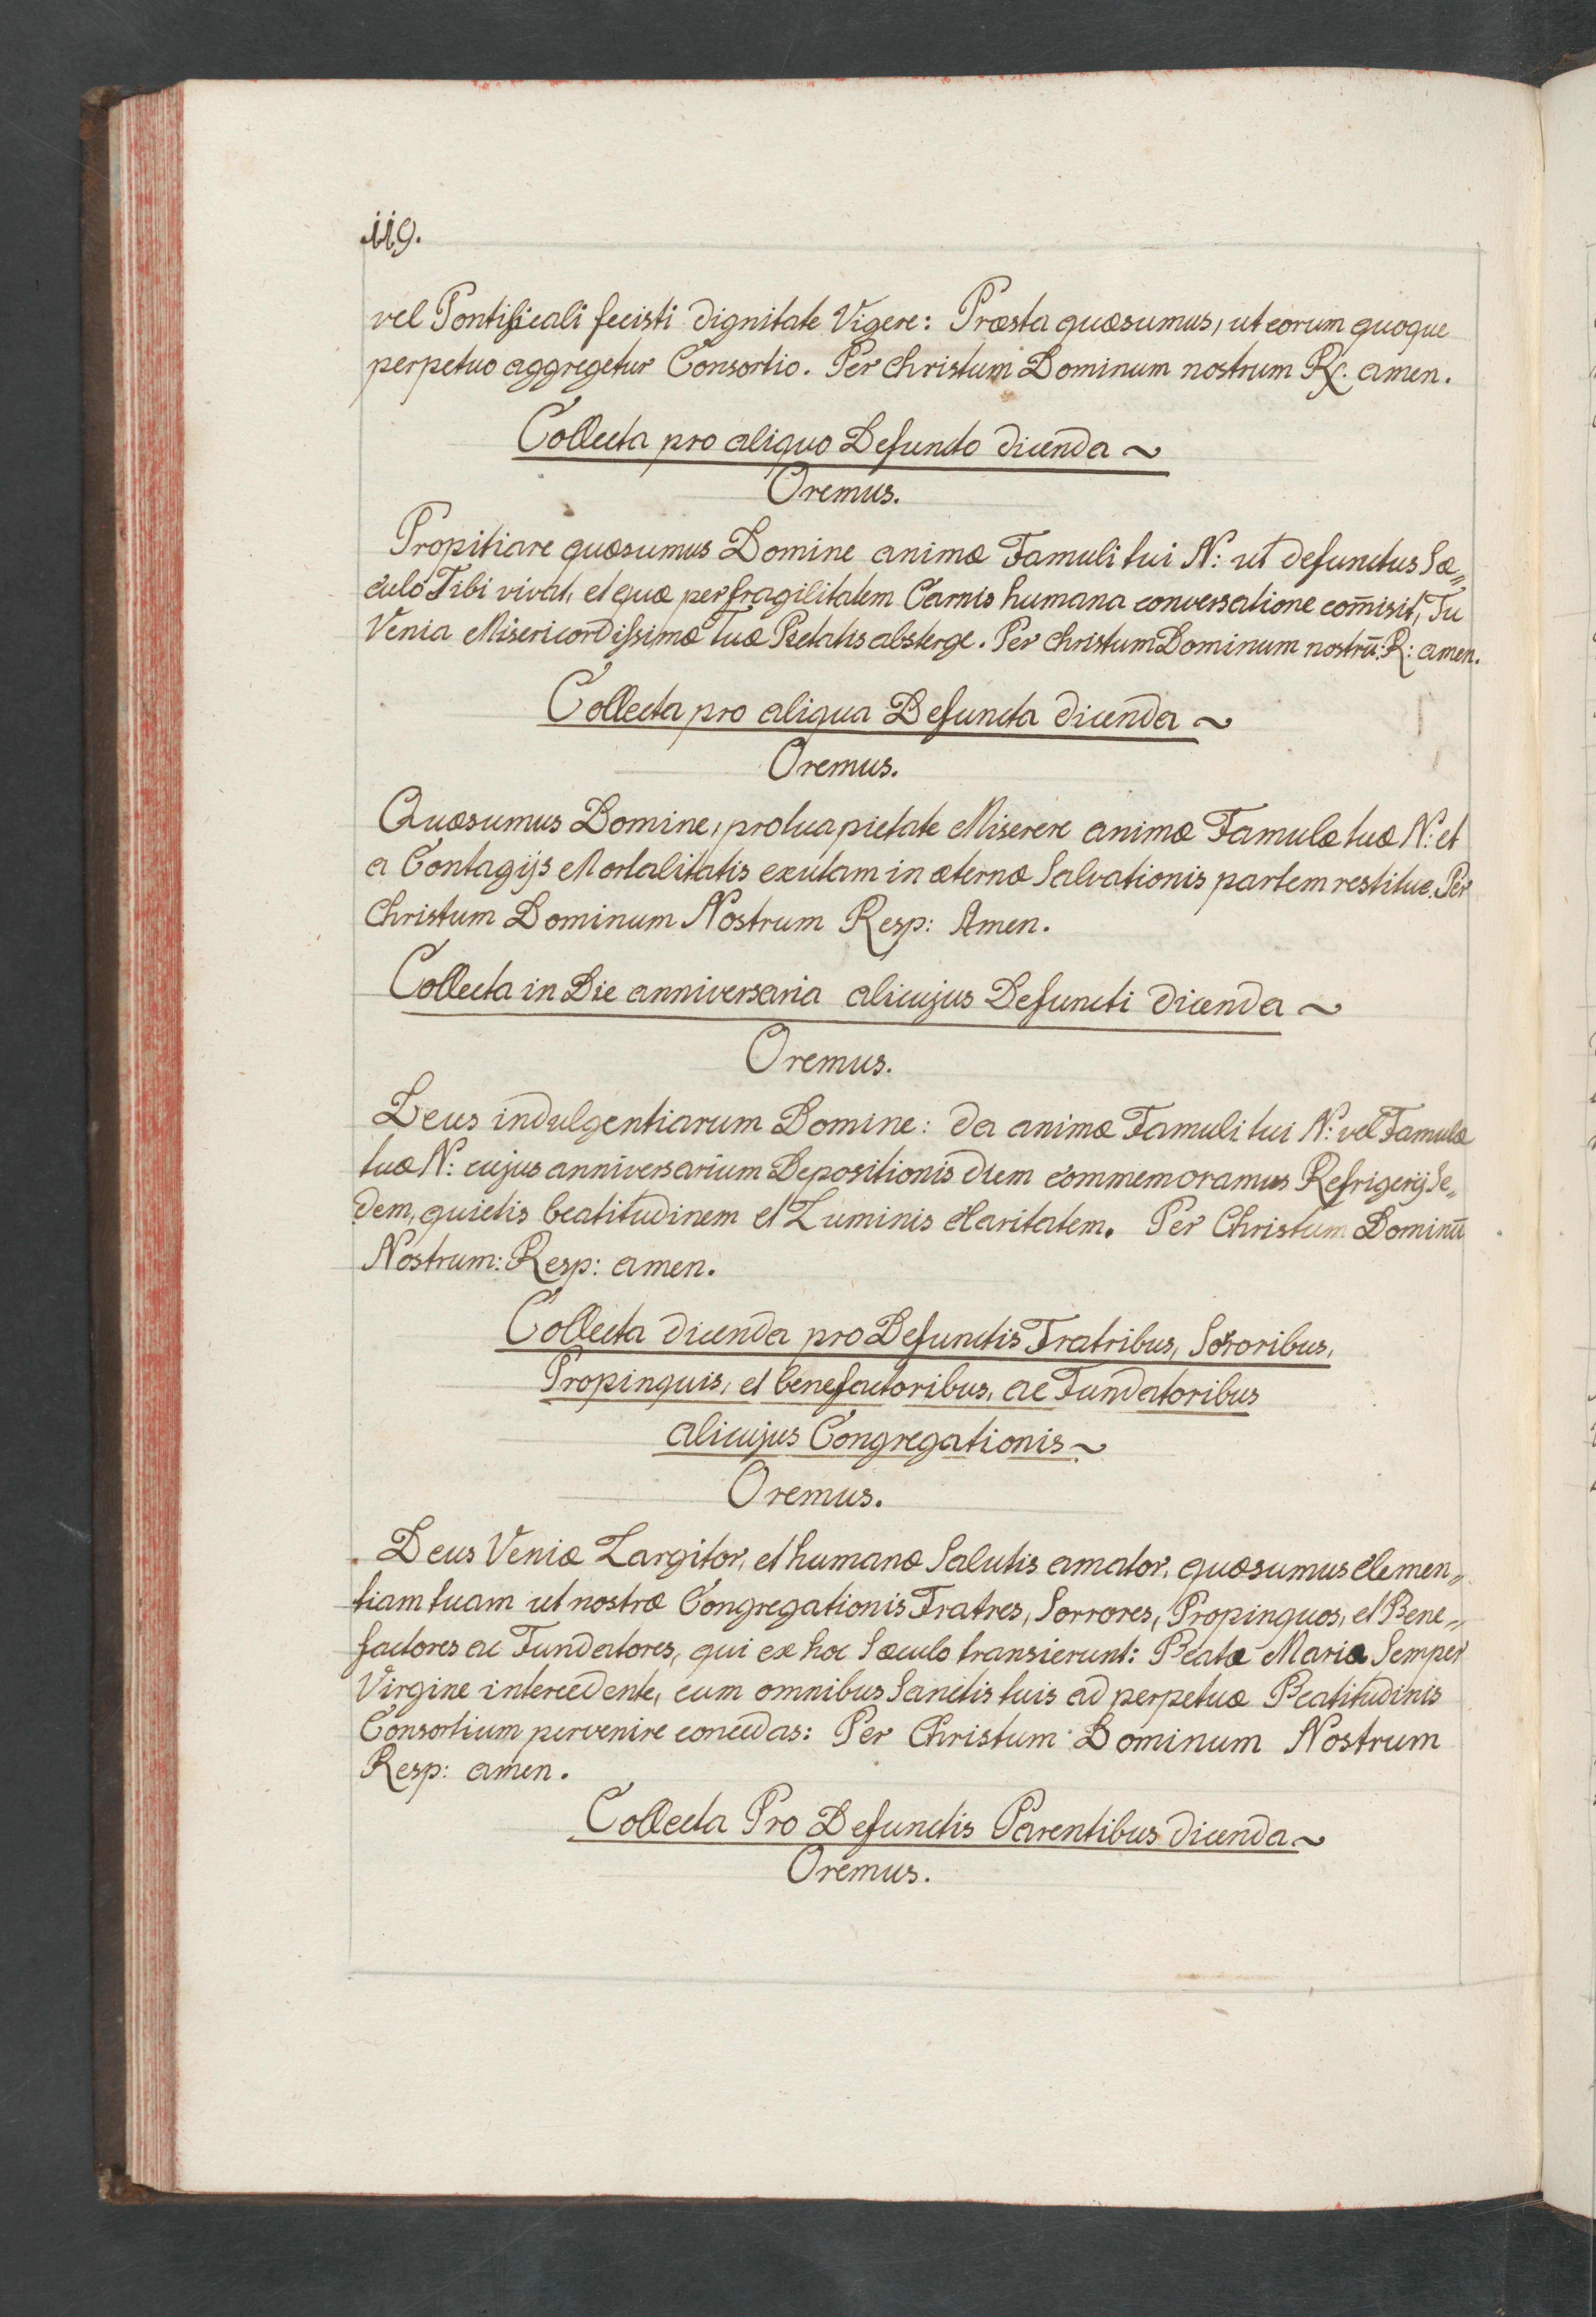 119.
vel Pontificali fecisti dignitate Vigere: Præsta quæsumus, ut eorum quoque
perpetuo aggregetur Consortio. Per Christum Dominum nostrum ℟. amen.
Collecta pro aliquo Defuncto dicenda ~
Oremus.
Propitiare quæsumus Domine animæ Famuli tui N: ut defunctus Sæ„
culo Tibi vivat, et quæ per fragilitatem Carnis humana conversatione com̄isit, Tu
Venia Misericordissimæ Tuæ Pietatis absterge. Per Christum Dominum nostrū: R: amen.
Collecta pro aliqua Defuncta dicenda ~
Oremus.
Quæsumus Domine, pro tua pietate Miserere animæ Famulæ tuæ N: et
a Contagijs Mortalitatis exutam in æternæ Salvationis partem restitue. Per
Christum Dominum Nostrum Resp: Amen.
Collecta in Die anniversaria alicujus Defuncti dicenda ~
Oremus.
Deus indulgentiarum Domine: da animæ Famuli tui N: vel Famulæ
tuæ N: cujus anniversarium Depositionis diem commemoramus Refrigerij Se„
dem, quietis beatitudinem et Luminis claritatem. Per Christum Dominū
Nostrum: Resp: amen.
Collecta dicenda pro Defunctis Fratribus, Sororibus,
Propinquis, et benefactoribus, ac Fundatoribus
alicujus Congregationis ~
Oremus.
Deus Veniæ Largitor, et humanæ Salutis amator, quæsumus clemen„
tiam tuam ut nostræ Congregationis Fratres, Sorrores, Propinquos, et Bene„
factores ac Fundatores, qui ex hoc Sæculo transierunt: Beata Maria Semper
Virgine intercedente, cum omnibus Sanctis tuis ad perpetuæ Beatitudinis
Consortium pervenire concedas: Per Christum Dominum Nostrum
Resp: amen.
Collecta Pro Defunctis Parentibus dicenda ~
Oremus.